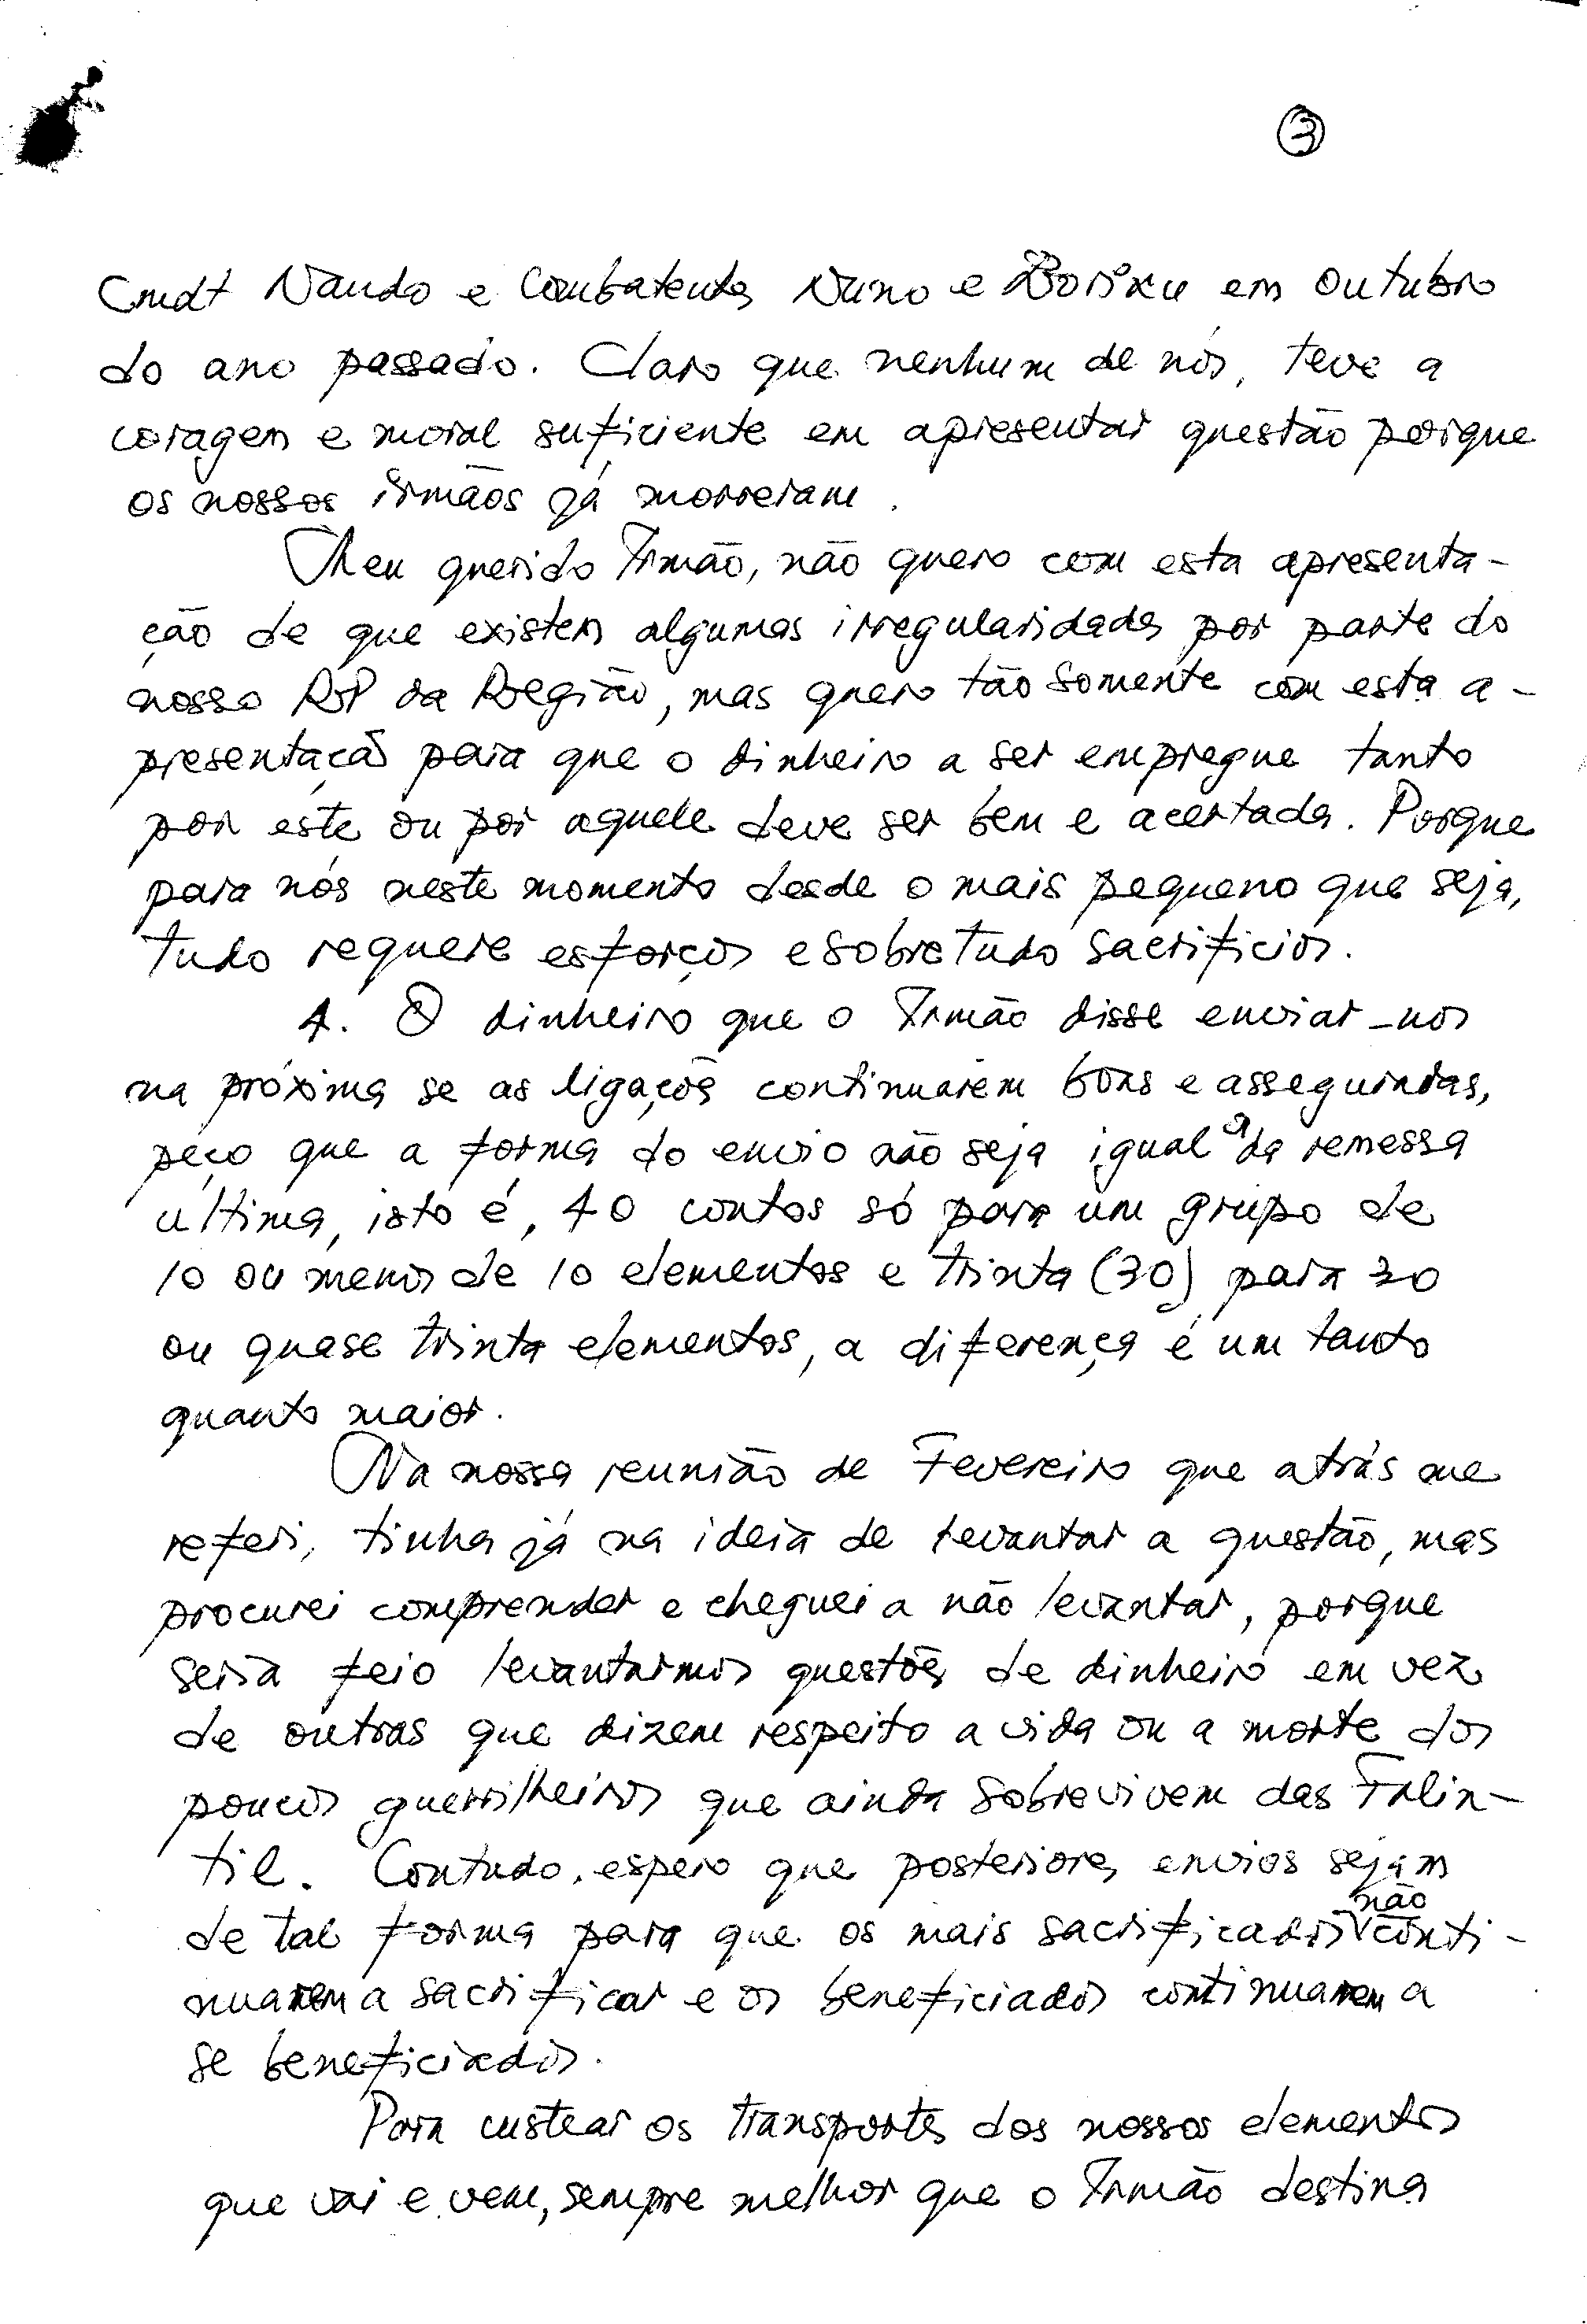 3
Cmdt Nando e Combatentes Nuno e Borixu em Outubro
do ano passado. Claro que nenhum de nós, teve a
coragem e moral suficiente em apresentar questão porque
os nossos irmãos já morreram.
Meu querido Irmão, não quero com esta apresenta-
ção de que existem algumas irregularidades por parte do
nosso RP da Região, mas quero tão somente com esta a-
presentação para que o dinheiro a ser empregue tanto
por este ou por aquele deve ser bem e acertada. Porque
para nós neste momento desde o mais pequeno que seja,
tudo requere esforços e sobretudo sacrifícios.
4. O dinheiro que o Irmão disse enviar-nos
na próxima se as ligações continuarem bons e asseguradas,
peço que a forma do envio não seja igual a da remessa
última, isto é, 40 contos só para um grupo de
10 ou menos de 10 elementos e trinta (30) para 30
ou quase trinta elementos, a diferença é um tanto
quanto maior.
Na nossa reunião de Fevereiro que atrás me
referi, tinha já na ideia de levantar a questão, mas
procurei comprender e cheguei a não levantar, porque
seria feio levantarmos questões de dinheiro em vez
de outras que dizem respeito a vida ou a morte dos
poucos guerrilheiros que ainda sobrevivem das Falin-
til. Contudo, espero que posteriores envios sejam
de tal forma para que os mais sacrificados não conti-
nuarem a sacrificar e os beneficiados continuarem a
se beneficiados.
Para custear os transportes dos nossos elementos
que vai e vem, sempre melhor que o Irmão destina